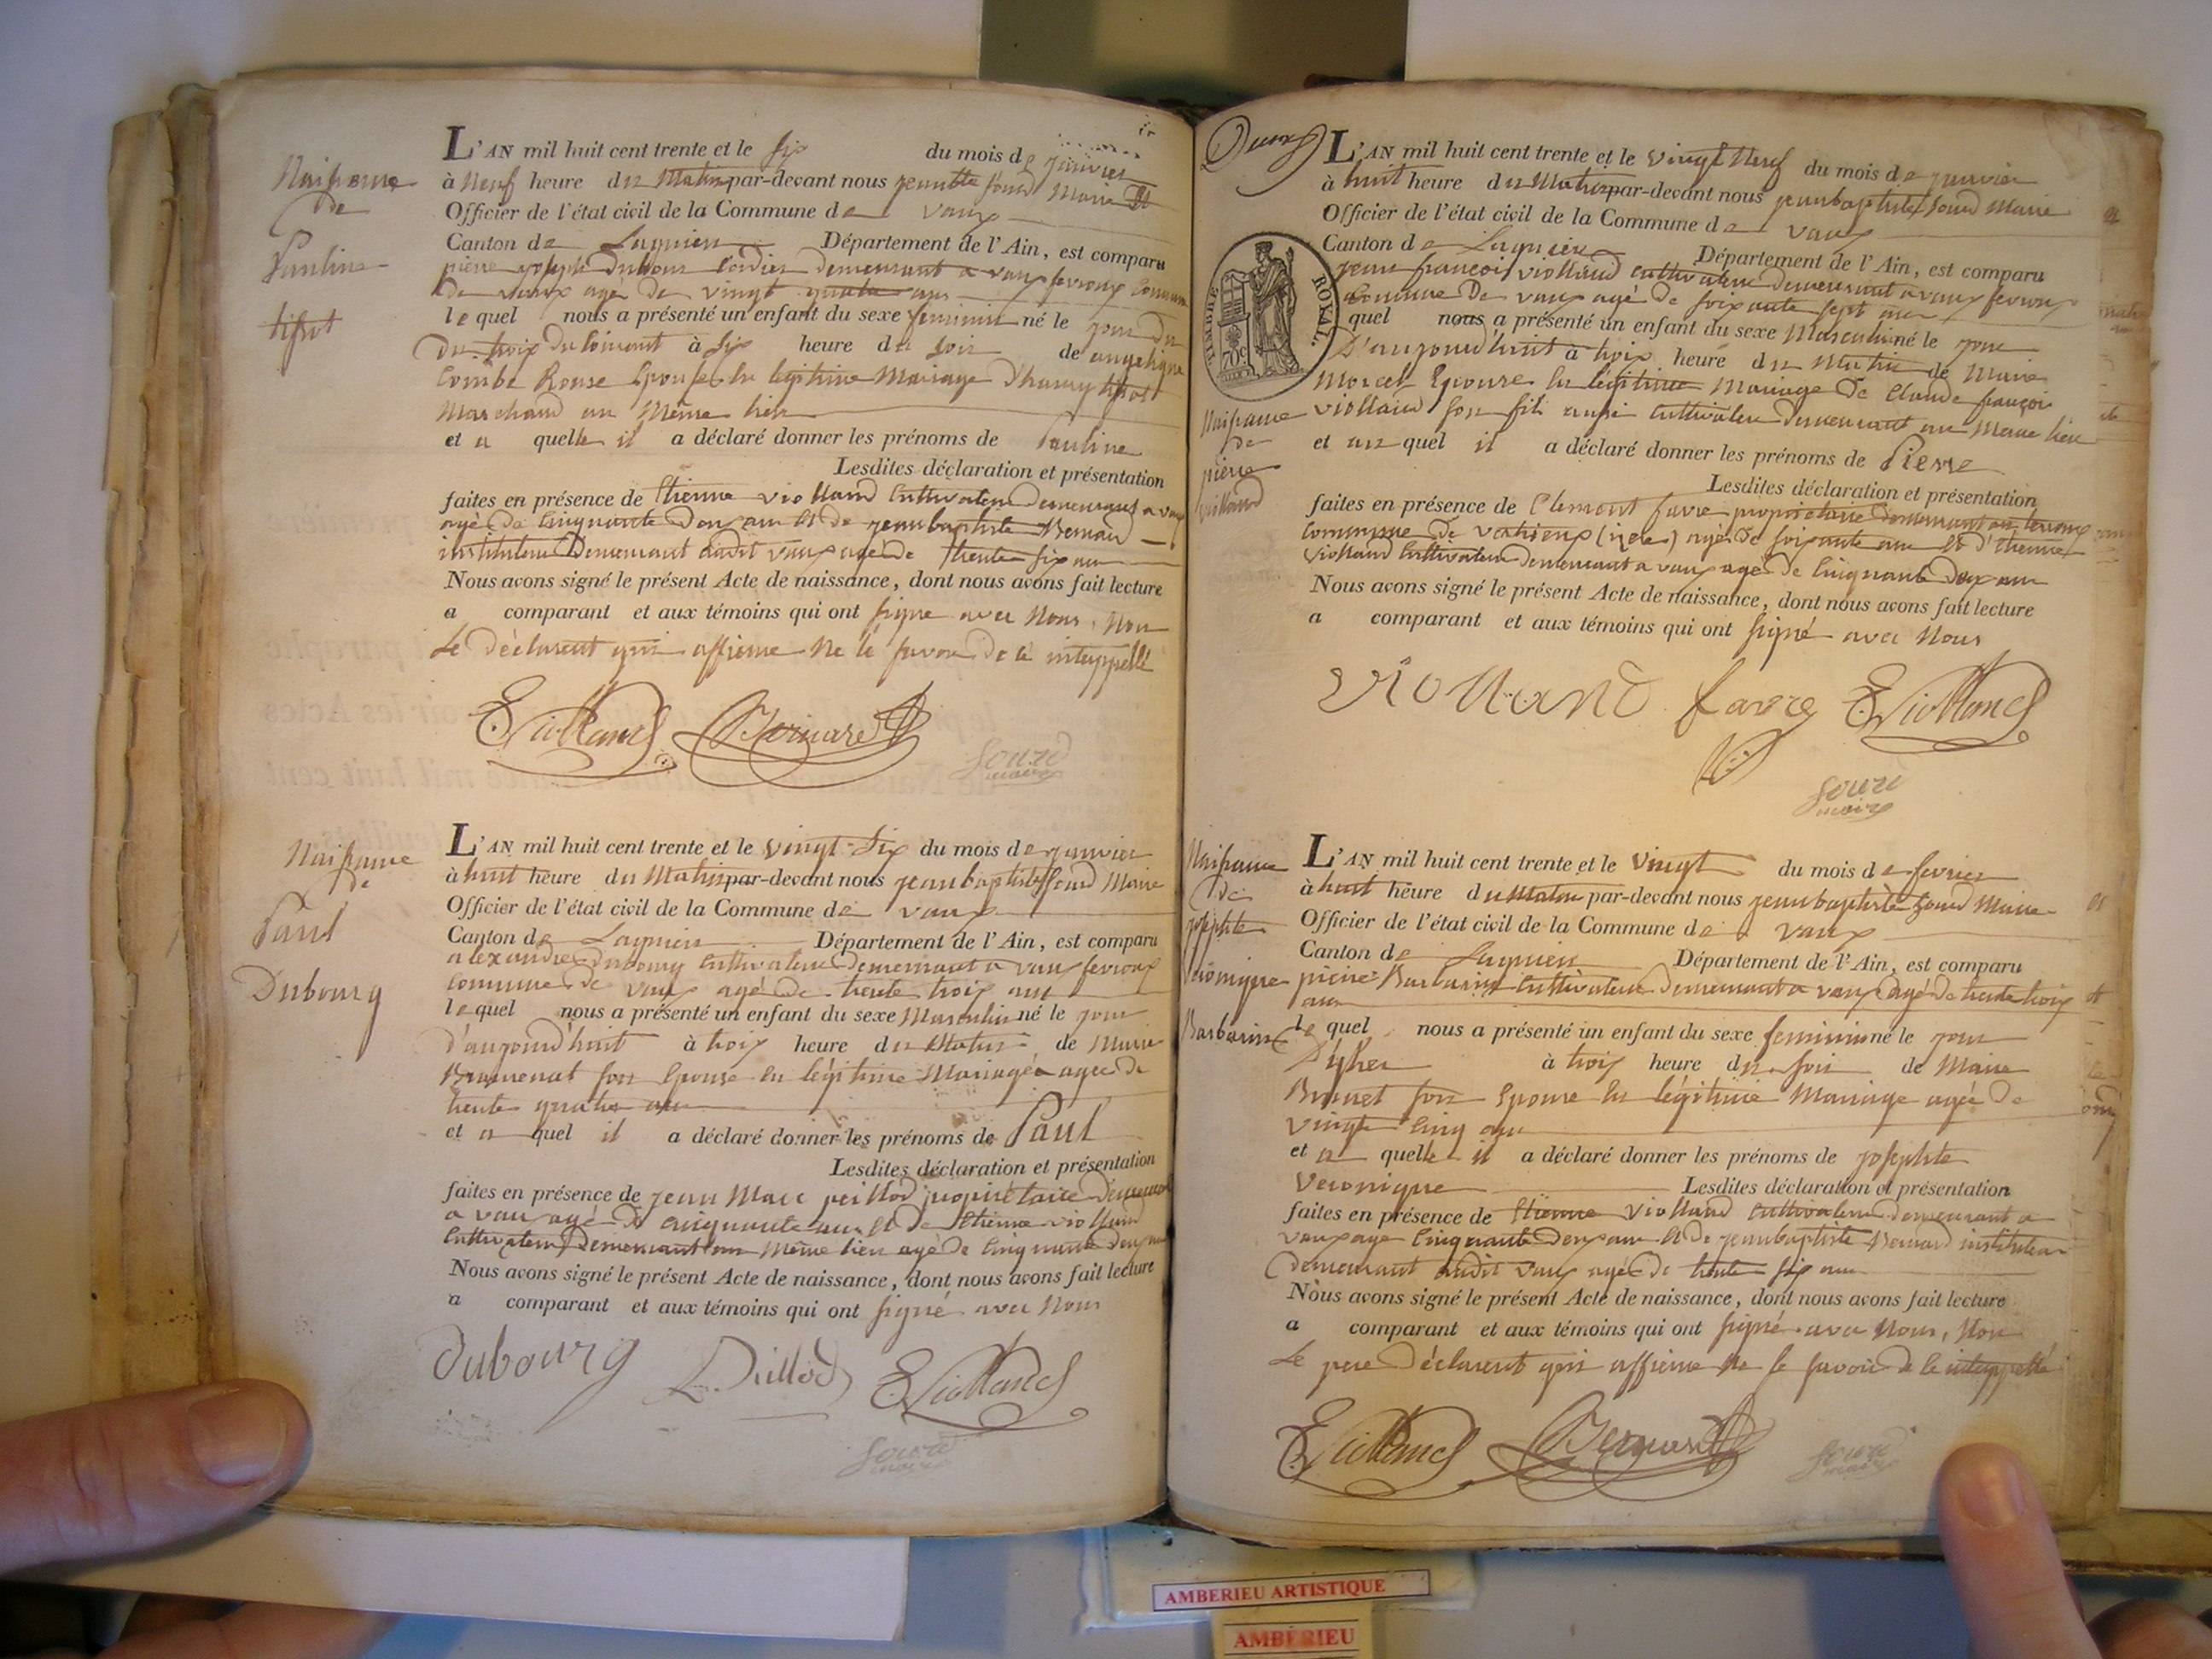 Naissance
de
Pauline
tissot
L'AN mil huit cent trente et le six du mois de janvier
à neuf heure du Matin par-devant nous Maire
Officier de l'état civil de la Commune de vaux
Canton de Lagnieu Département de l'Ain, est comparu
pierre joseph demeurant a vaux fevroux commune
de vaux agé de vingt quatre ans
lequel nous a présenté un enfant du sexe feminin né le jour du
du trois du courant à six heure du soir de angelique
Combe Rouse Epouse en légitime Mariage d'hanry tissot
Marchand au Même lieu
et a quelle il a déclaré donner les prénoms de Pauline
Lesdites déclaration et présentation
faites en présence de Etienne Violland Cultivateur demeurant a vaux
agé de Cinquante deux ans et de jeanbaptiste Bernard
instituteur Demeurant audit vaux agé de trente six ans
Nous avons signé le présent Acte de naissance, dont nous avons fait lecture
a comparant et aux témoins qui ont signé avec Nous, Non
Le déclarent qui affirme Ne le savoir de ce interppellé
E Violland Bernard
Sourd
maire
Naissance
de
Paul
Dubourg
L'AN mil huit cent trente et le vingt-Six du mois de janvier
à huit heure du Matin par-devant nous jeanbaptiste Sourd Maire
Officier de l'état civil de la Commune de vaux
Canton de Lagnieu Département de l'Ain, est comparu
alexandre dubourg Cultivateur demeurant a vaux fevroux
Commune de vaux agé de trente trois ans
lequel nous a présenté un enfant du sexe Masculin né le jour
d'aujourd'huit à trois heure du Matin de Marie
Bramenat son Epouse en légitime Mariage agée de
trente quatre ans
et a quel il a déclaré donner les prénoms de Paul
Lesdites déclaration et présentation
faites en présence de jean Marc peillod propriétaire demeurant
a vaux agé de cinquante ans et de Etienne violland
Cultivateur Demeurant au Même lieu agé de Cinquante deux ans
Nous avons signé le présent Acte de naissance, dont nous avons fait lecture
a comparant et aux témoins qui ont signé avec Nous
Dubourg E Violland
Sourd
maire
TIMBRE ROYAL.
70c
Naissance
de
pierre
violland
L'AN mil huit cent trente et le vingt Neuf du mois de janvier
à huit heure du Matin par-devant nous jeanbaptiste Sourd Maire
Officier de l'état civil de la Commune de vaux
Canton de Lagnieu Département de l'Ain, est comparu
jean françois viollaud cultivateur demeurant a vaux fevroux
Commune De vaux agé de soixante sept ans
quel nous a présenté un enfant du sexe Masculin né le jour
D'aujourd'huit à trois heure du Matin de Marie
Morcel Epouse en légitime Mariage de Claude françois
viollaud son fils aussi Cultivateur demeurant au Meme lieu
et au quel il a déclaré donner les prénoms de Pierre
Lesdites déclaration et présentation
faites en présence de Clement favre propriétaire demeurant
commune de agé de soixante ans et d'Etienne
Viollaud Cultivateur demeurant a vaux agé de Cinquante deux ans
Nous avons signé le présent Acte de naissance, dont nous avons fait lecture
a comparant et aux témoins qui ont signé avec Nous
violland favre E Violland
Sourd
maire
Naissance
de
josephte
Véronique
Barbarin
L'AN mil huit cent trente et le vingt du mois de fevrier
à huit heure du Matin par-devant nous jeanbaptiste Sourd Maire
Officier de l'état civil de la Commune de vaux
Canton de Lagnieu Département de l'Ain, est comparu
pierre Barbarin Cultivateur demeurant a vaux agé de trente trois
ans
le quel nous a présenté un enfant du sexe feminin né le jour
D'yher à trois heure du soir de Marie
Brunet son Epouse en légitime Mariage agée de
vingt Cinq ans
et a quelle il a déclaré donner les prénoms de josephte
Veronique Lesdites déclaration et présentation
faites en présence de Etienne Viollaud Cultivateur demeurant a
vaux age Cinquante deux ans et de jeanbaptiste Bernard instituteur
demeurant audit vaux agé de trente six ans
Nous avons signé le présent Acte de naissance, dont nous avons fait lecture
a comparant et aux témoins qui ont signé avec Nous, Non
Le pere déclarent qui affirme Ne le savoir de le interppellé
E Violland Bernard
Sourd
maire
AMBERIEU ARTISTIQUE
AMBERIEU